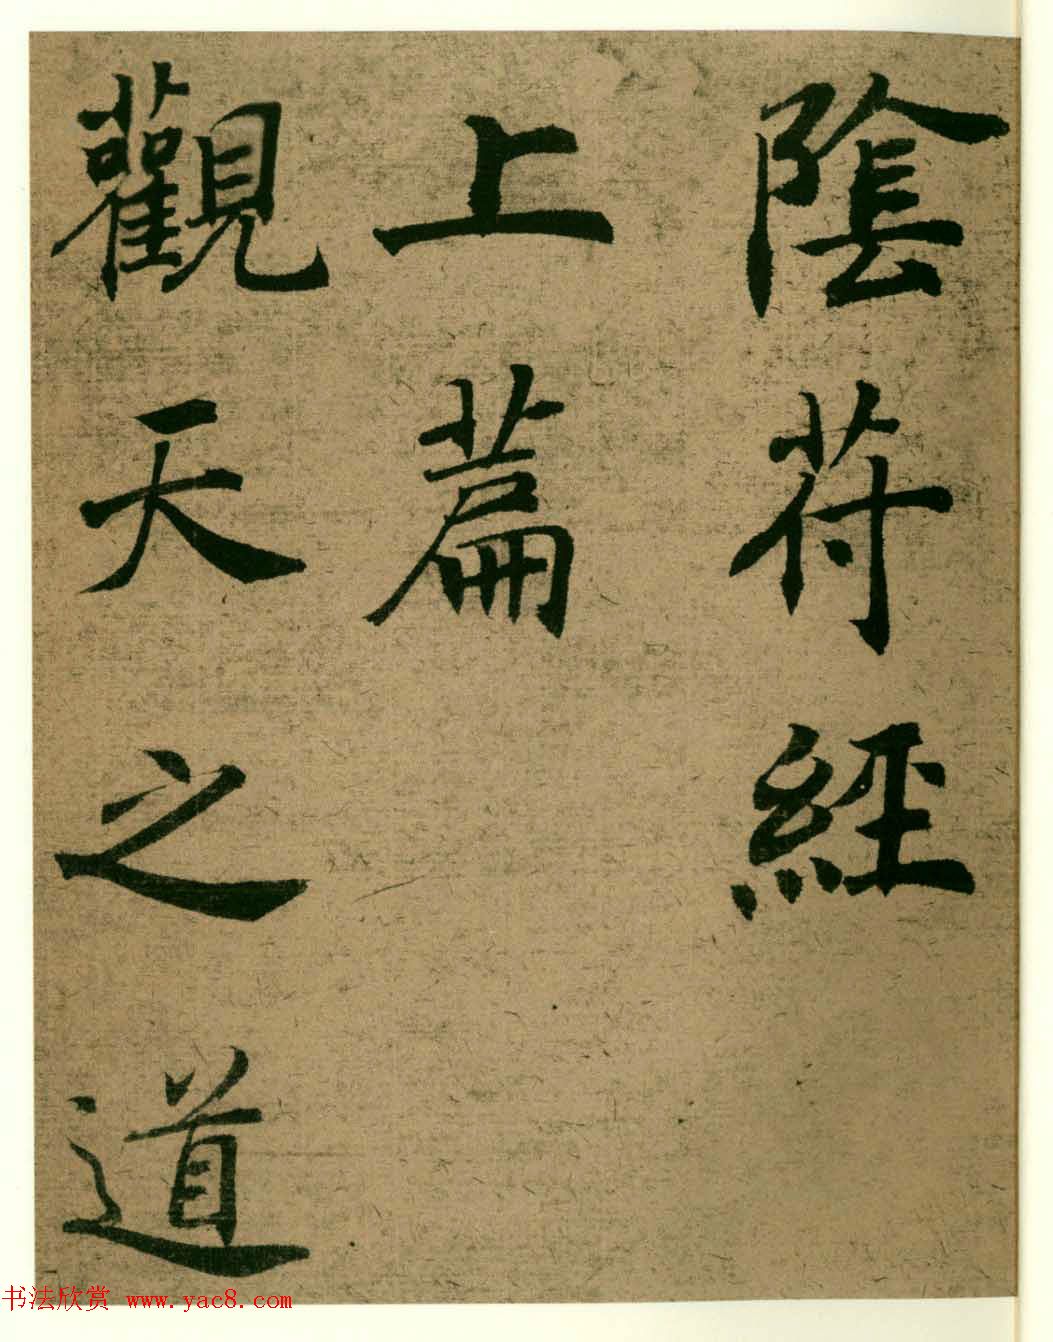 陰符經
上篇
觀天之道
书法欣赏 www.yac8.com